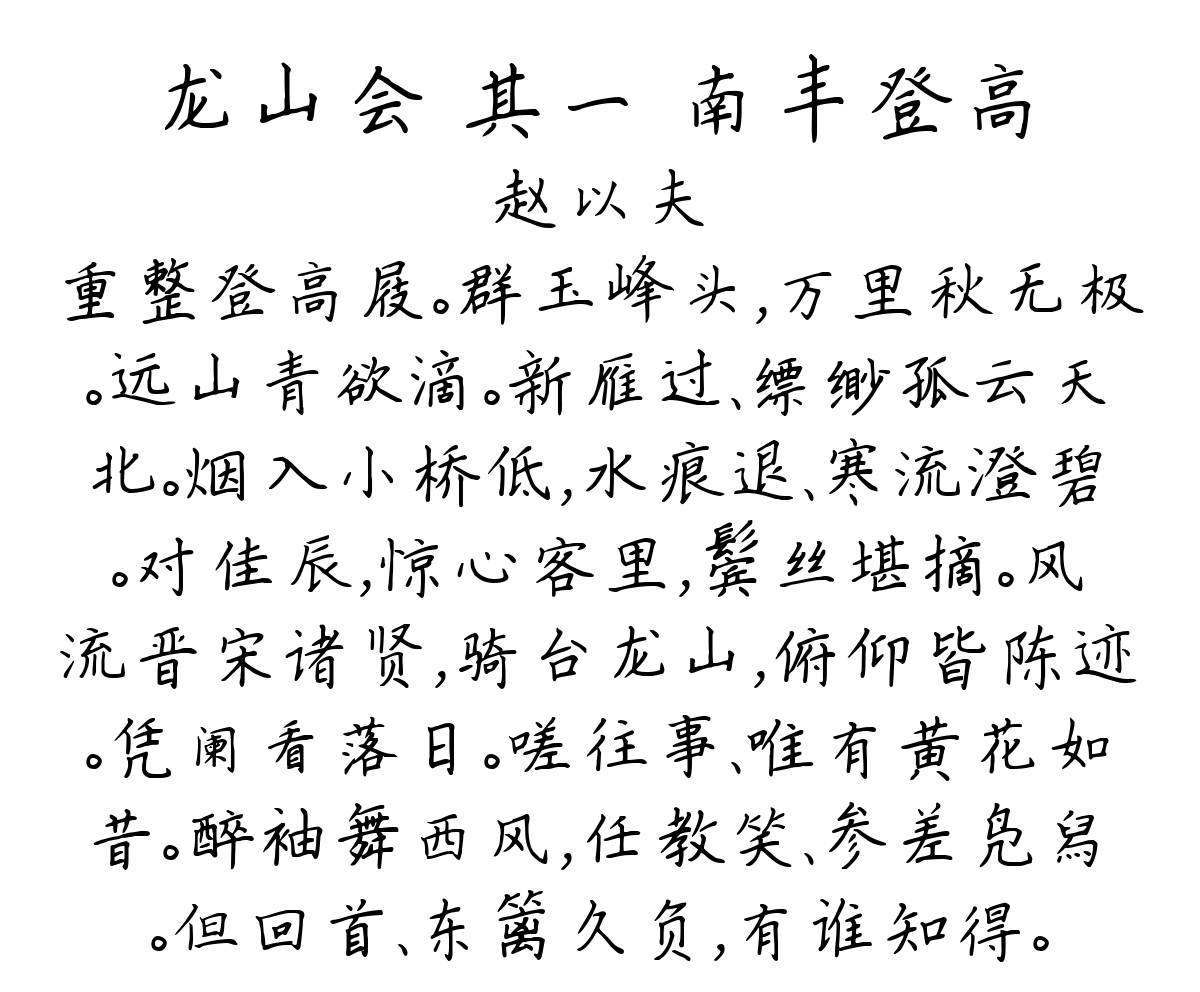 龙山会 其一 南丰登高
赵以夫
重整登高屐。群玉峰头,万里秋无极
。远山青欲滴。新雁过、缥缈孤云天
北。烟入小桥低,水痕退、寒流澄碧
。对佳辰,惊心客里,鬓丝堪摘。风
流晋宋诸贤,骑台龙山,俯仰皆陈迹
。凭阑看落日。嗟往事、唯有黄花如
昔。醉袖舞西风,任教笑、参差凫舄
。但回首、东篱久负,有谁知得。